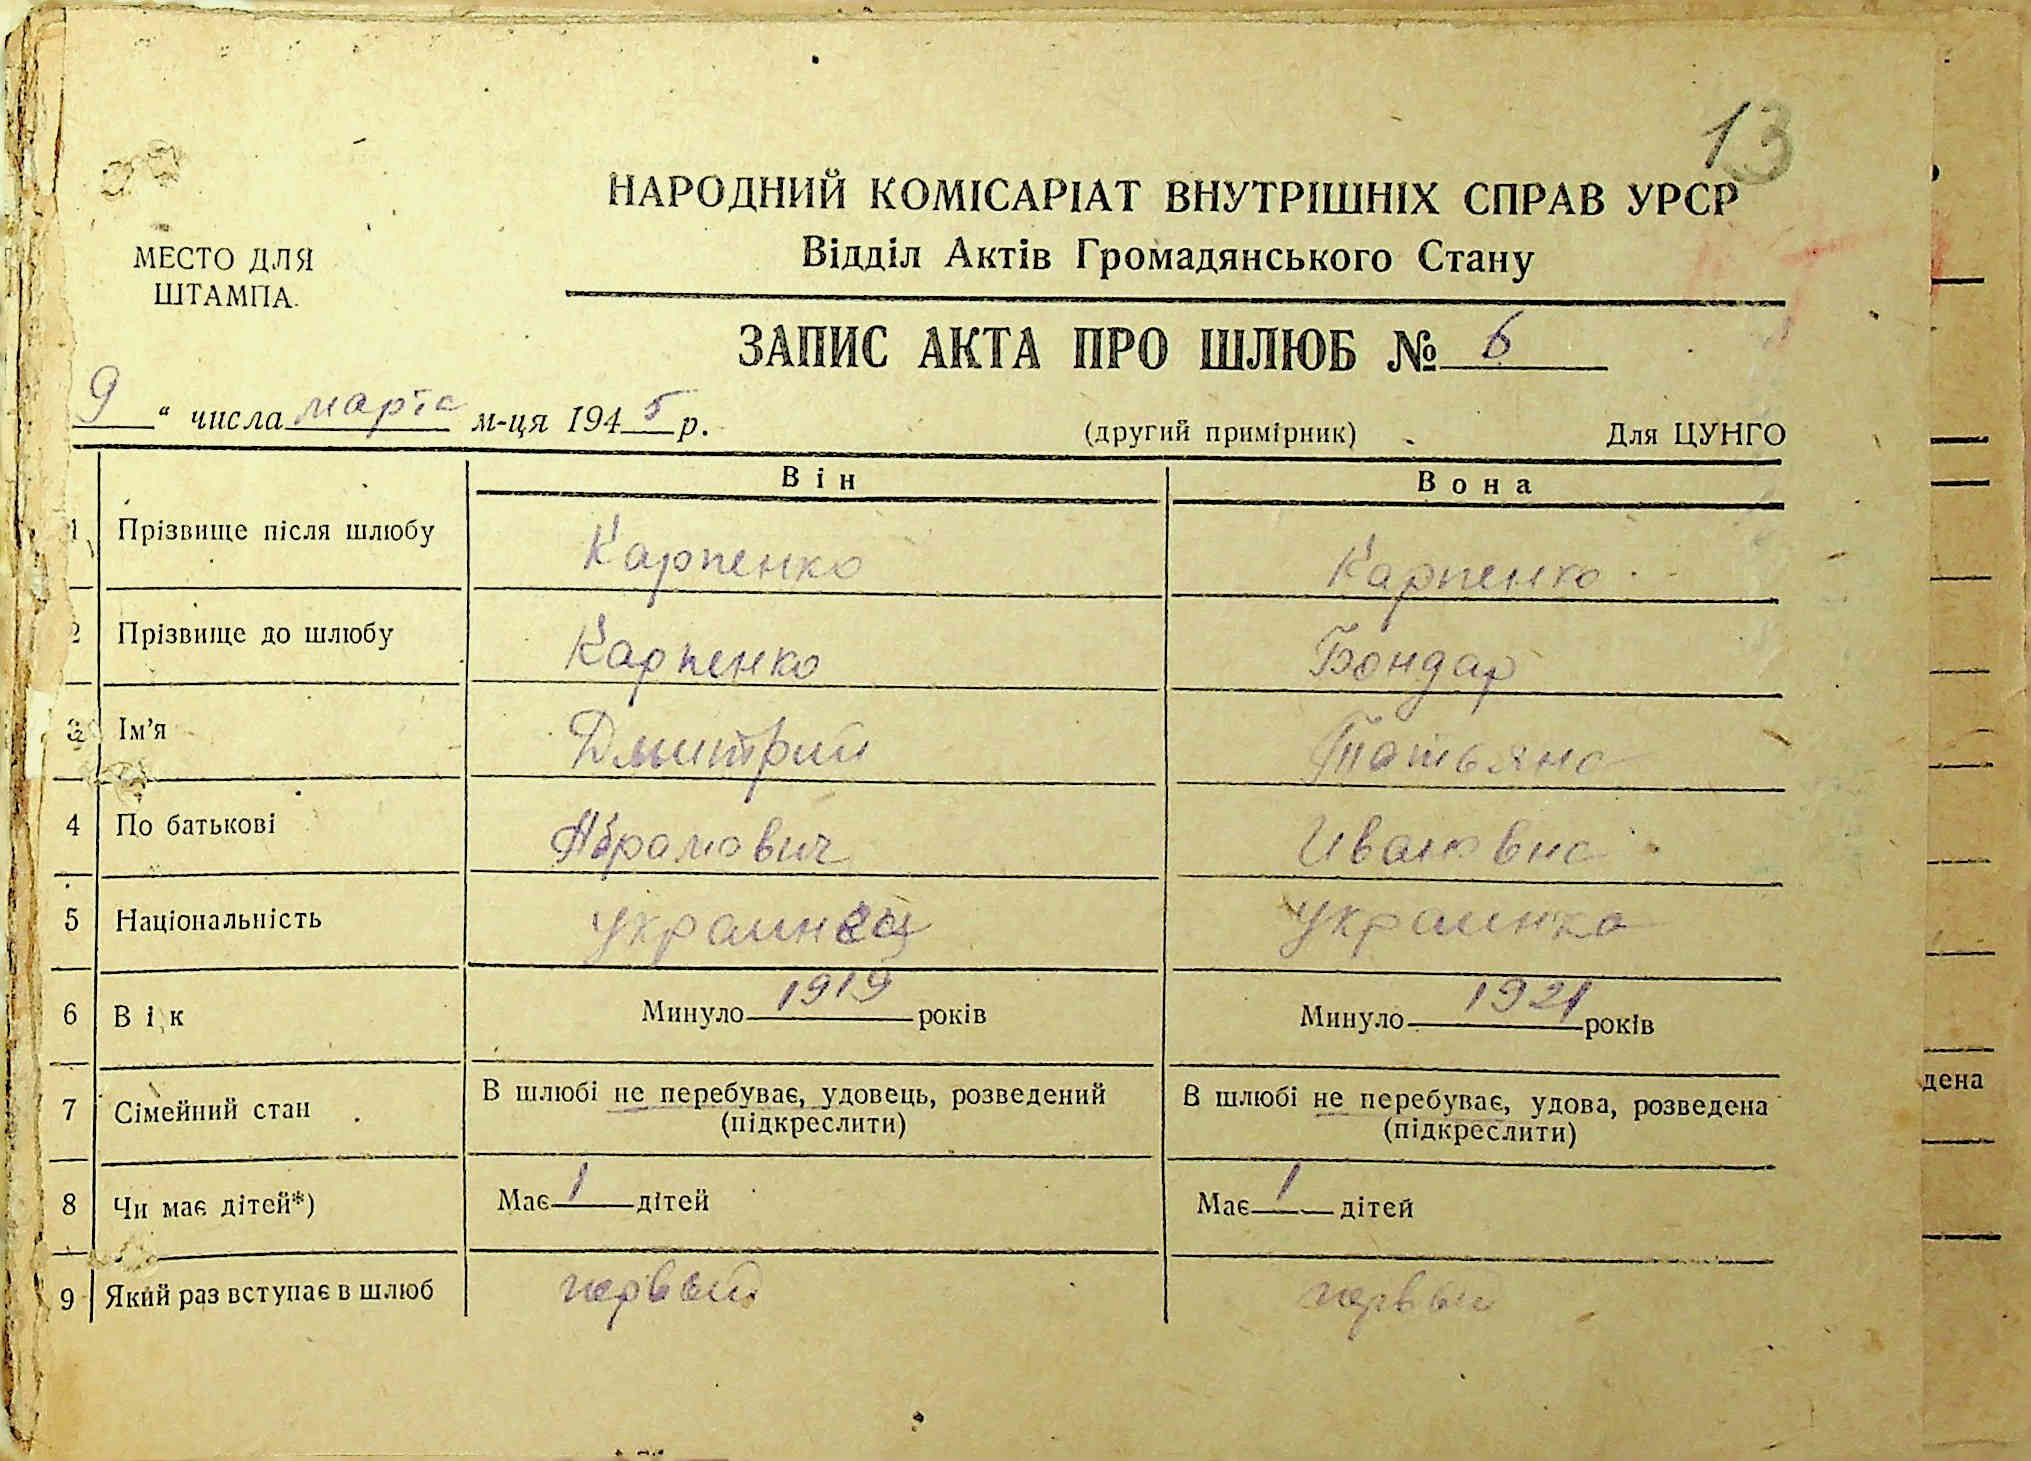 13
НАРОДНИЙ КОМІСАРІАТ ВНУТРІШНІХ СПРАВ УРСР
Відділ Актів Громадянського Стану
МЕСТО ДЛЯ
ШТАМПА.
ЗАПИС АКТА ПРО ШЛЮБ № 6
9 “ числа марта м-ця 1945 р.
(другий примірник) Для ЦУНГО
Він Вона
1 Прізвище після шлюбу Карпенко Карпенко
2 Прізвище до шлюбу Карпенко Бондар
3 Ім’я Дмитрий Татьяна
4 По батькові Абрамович Ивановна
5 Національність украинец украинка
6 Вік Минуло 1919 років Минуло 1921 років
7 Сімейний стан В шлюбі не перебуває, удовець, розведений В шлюбі не перебуває, удова, розведена
(підкреслити) (підкреслити)
8 Чи має дітей*) Має 1 дітей Має 1 дітей
9 Який раз вступає в шлюб первый первый
дена